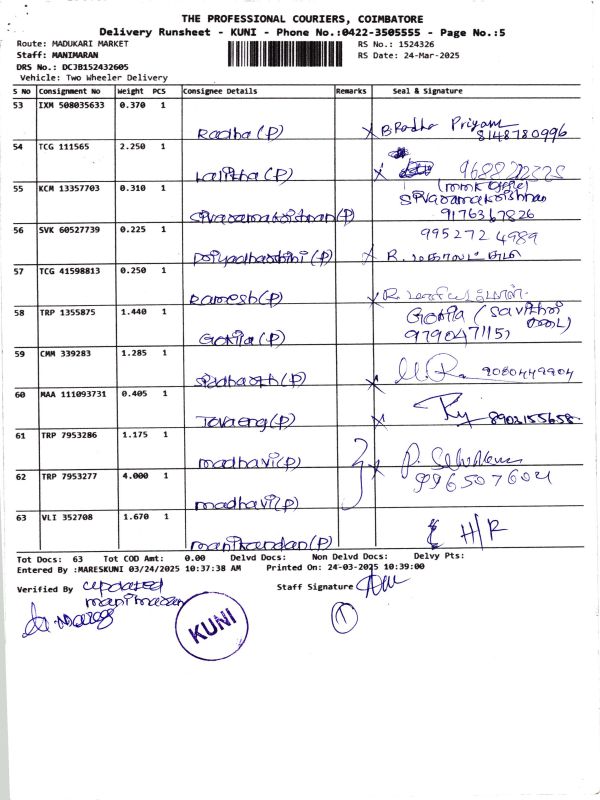 THE PROFESSIONAL COURIERS, COIMBATORE
Delivery Runsheet - KUNI - Phone No.:0422-3505555 - Page No.:5
Route: MADUKARI MARKET RS No.: 1524326
Staff: MANIMARAN RS Date: 24-Mar-2025
DRS No.: DCJB152432605
Vehicle: Two Wheeler Delivery
S No Consignment No Weight PCS Consignee Details Remarks Seal & Signature
53 IXM 508035633 0.370 1
Radha (P) B Radha Priyam
8148780996
54 TCG 111565 2.250 1
Lalitha (P)
55 KCM 13357703 0.310 1
Sivaramakrishnan (P) Sivaramakrishnan
9176367826
56 SVK 60527739 0.225 1
(P) 995272 4989
R.
57 TCG 41598813 0.250 1
Ramesh (P) R.
58 TRP 1355875 1.440 1
Gokila (P) Gokila (Savithri
9790471151
59 CMM 339283 1.285 1
Sidharth (P) 9080449904
60 MAA 111093731 0.405 1
(P) 8903155658
61 TRP 7953286 1.175 1
madhavi (P) P.
62 TRP 7953277 4.000 1
madhavi (P) 9965076021
63 VLI 352708 1.670 1
manikandan (P) H/R
Tot Docs: 63 Tot COD Amt: 0.00 Delvd Docs: Non Delvd Docs: Delvy Pts:
Entered By :MARESKUNI 03/24/2025 10:37:38 AM Printed On: 24-03-2025 10:39:00
Verified By updated Staff Signature
manimaran
KUNI
1